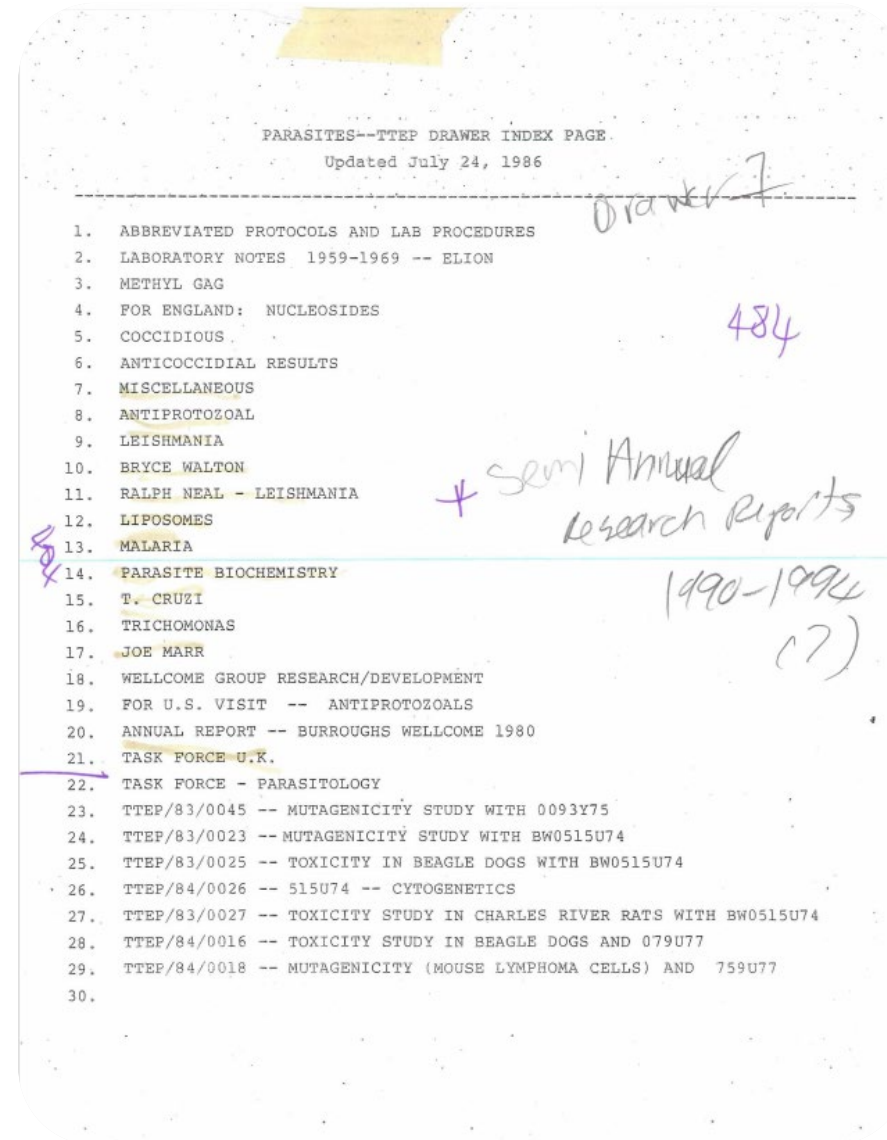 PARASITES--TTEP DRAWER INDEX PAGE
Updated July 24, 1986
Drawer 7
1. ABBREVIATED PROTOCOLS AND LAB PROCEDURES
2. LABORATORY NOTES 1959-1969 -- ELION
3. METHYL GAG
4. FOR ENGLAND: NUCLEOSIDES
484
5. COCCIDIOUS
6. ANTICOCCIDIAL RESULTS
7. MISCELLANEOUS
8. ANTIPROTOZOAL
9. LEISHMANIA
10. BRYCE WALTON
+ Semi Annual
11. RALPH NEAL - LEISHMANIA
Research Reports
12. LIPOSOMES
484
13. MALARIA
14. PARASITE BIOCHEMISTRY
1990-1994
15. T. CRUZI
16. TRICHOMONAS
(7)
17. JOE MARR
18. WELLCOME GROUP RESEARCH/DEVELOPMENT
19. FOR U.S. VISIT -- ANTIPROTOZOALS
20. ANNUAL REPORT -- BURROUGHS WELLCOME 1980
21. TASK FORCE U.K.
22. TASK FORCE - PARASITOLOGY
23. TTEP/83/0045 -- MUTAGENICITY STUDY WITH 0093Y75
24. TTEP/83/0023 -- MUTAGENICITY STUDY WITH BW0515U74
25. TTEP/83/0025 -- TOXICITY IN BEAGLE DOGS WITH BW0515U74
26. TTEP/84/0026 -- 515U74 -- CYTOGENETICS
27. TTEP/83/0027 -- TOXICITY STUDY IN CHARLES RIVER RATS WITH BW0515U74
28. TTEP/84/0016 -- TOXICITY STUDY IN BEAGLE DOGS AND 079U77
29. TTEP/84/0018 -- MUTAGENICITY (MOUSE LYMPHOMA CELLS) AND 759U77
30.